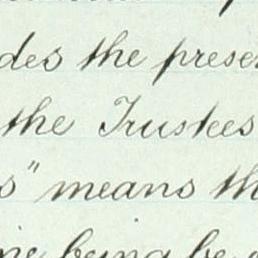 des the prese
the Trustees
s" means th
me being be